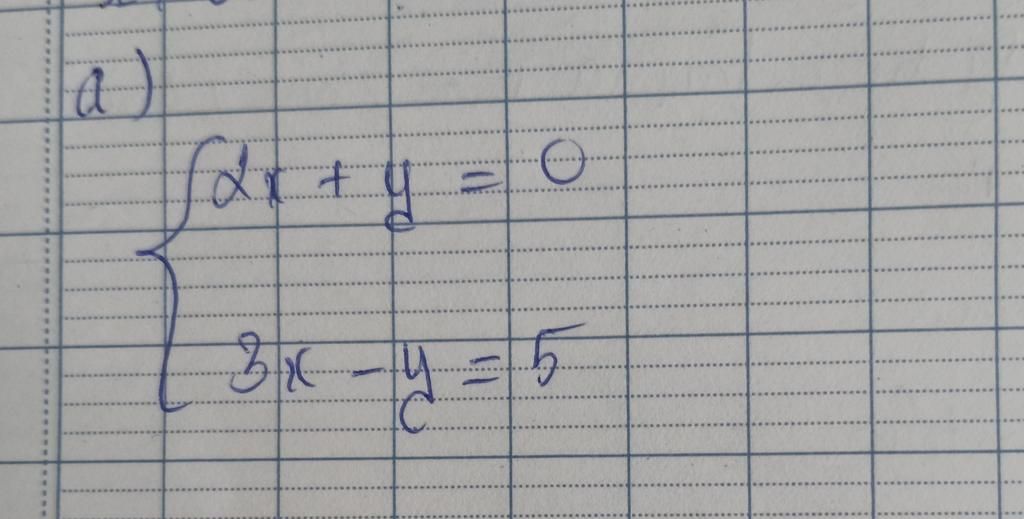 a)
{ 2x + y = 0
3x - y = 5